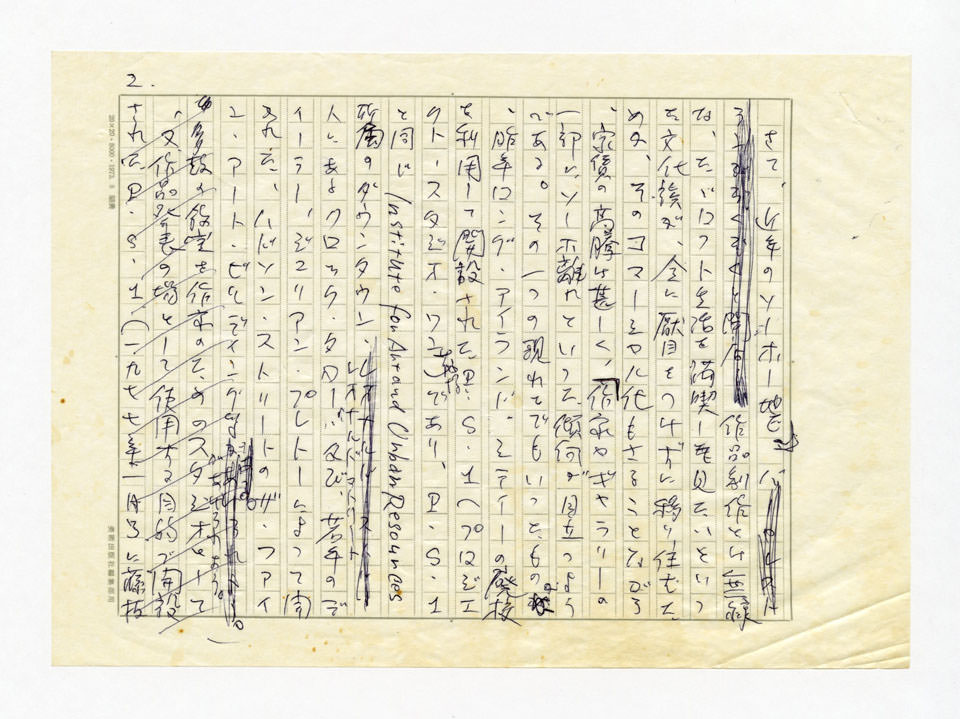 2.
さて、近年のソーホー地区
作品創作とは無縁
な、たゞロフト生活を満喫して見たいといっ
た文化族が、金に厭目をつけずに移り住むた
めか、そのコマーシャル化もさることながら
、家賃の高騰は甚しく、作家やギャラリーの
一部にソーホ離れといった傾向が目立つよう
である。その一つの現れでもいったもの
、昨年ロング・アイランド・シティーの廃校
を利用して開設されたP・S・1(プロジェ
クト・スタジオ・ワン)であり、P・S・1
と同じInstitute for Art and Urban Resources
所属のダウンタウン、
人によるクロック・タワー、及び、若手のデ
ィーラー、ジュリアン・プレトーによって開
かれた、ハドソン・ストリートのザ・ファイ
ン・アート・ビルディング
多数の教室を作家のためのスタジオとして
、又作品発表の場として使用する目的で開設
されたP・S・1(一九七七年一月号に藤枝
20×20・6000・1973. 5 観光